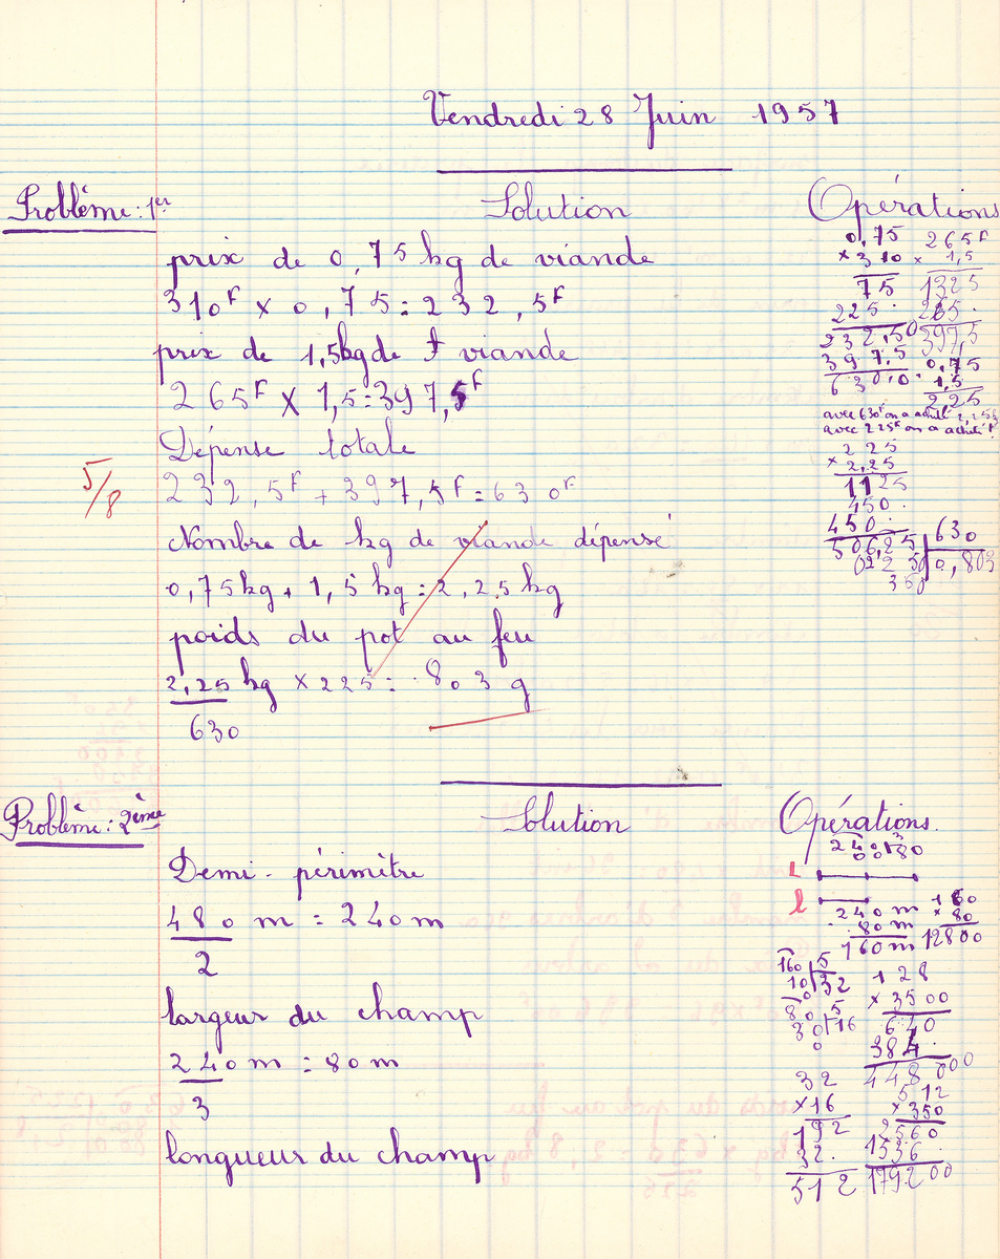 Vendredi 28 Juin 1957
Problème: 1er
Solution
Opérations
prix de 0,75 kg de viande
310F x 0,75 = 232,5F
prix de 1,5kg de viande
265F x 1,5 = 397,5F
Dépense totale
232,5F + 397,5F = 630F
5/8
Nombre de kg de viande dépensé
0,75kg + 1,5kg = 2,25kg
poids du pot au feu
2,25 kg x 225 = 803 g
630
0,75 265F
x 310 x 1,5
75 1325
225. 265.
232,50 397,5
397,5 0,75
630,0 1,5
2,25
avec 630F on a acheté 2,25kg
avec 225F on a acheté
225
x 2,25
1125
450.
450.
506,25 630
022 50 0,803
350
Problème: 2ème
Solution
Opérations.
Demi-périmètre
480 m = 240 m
2
largeur du champ
240 m = 80 m
3
longueur du champ
240 3
00 80
L
l
240 m 160
80 m x 80
160 m 12800
160 5
10 32
0
80 5
30 16
0
128
x 3500
640
384.
448 000
32
x16
192
32.
512
512
x 350
2560
1536.
179200